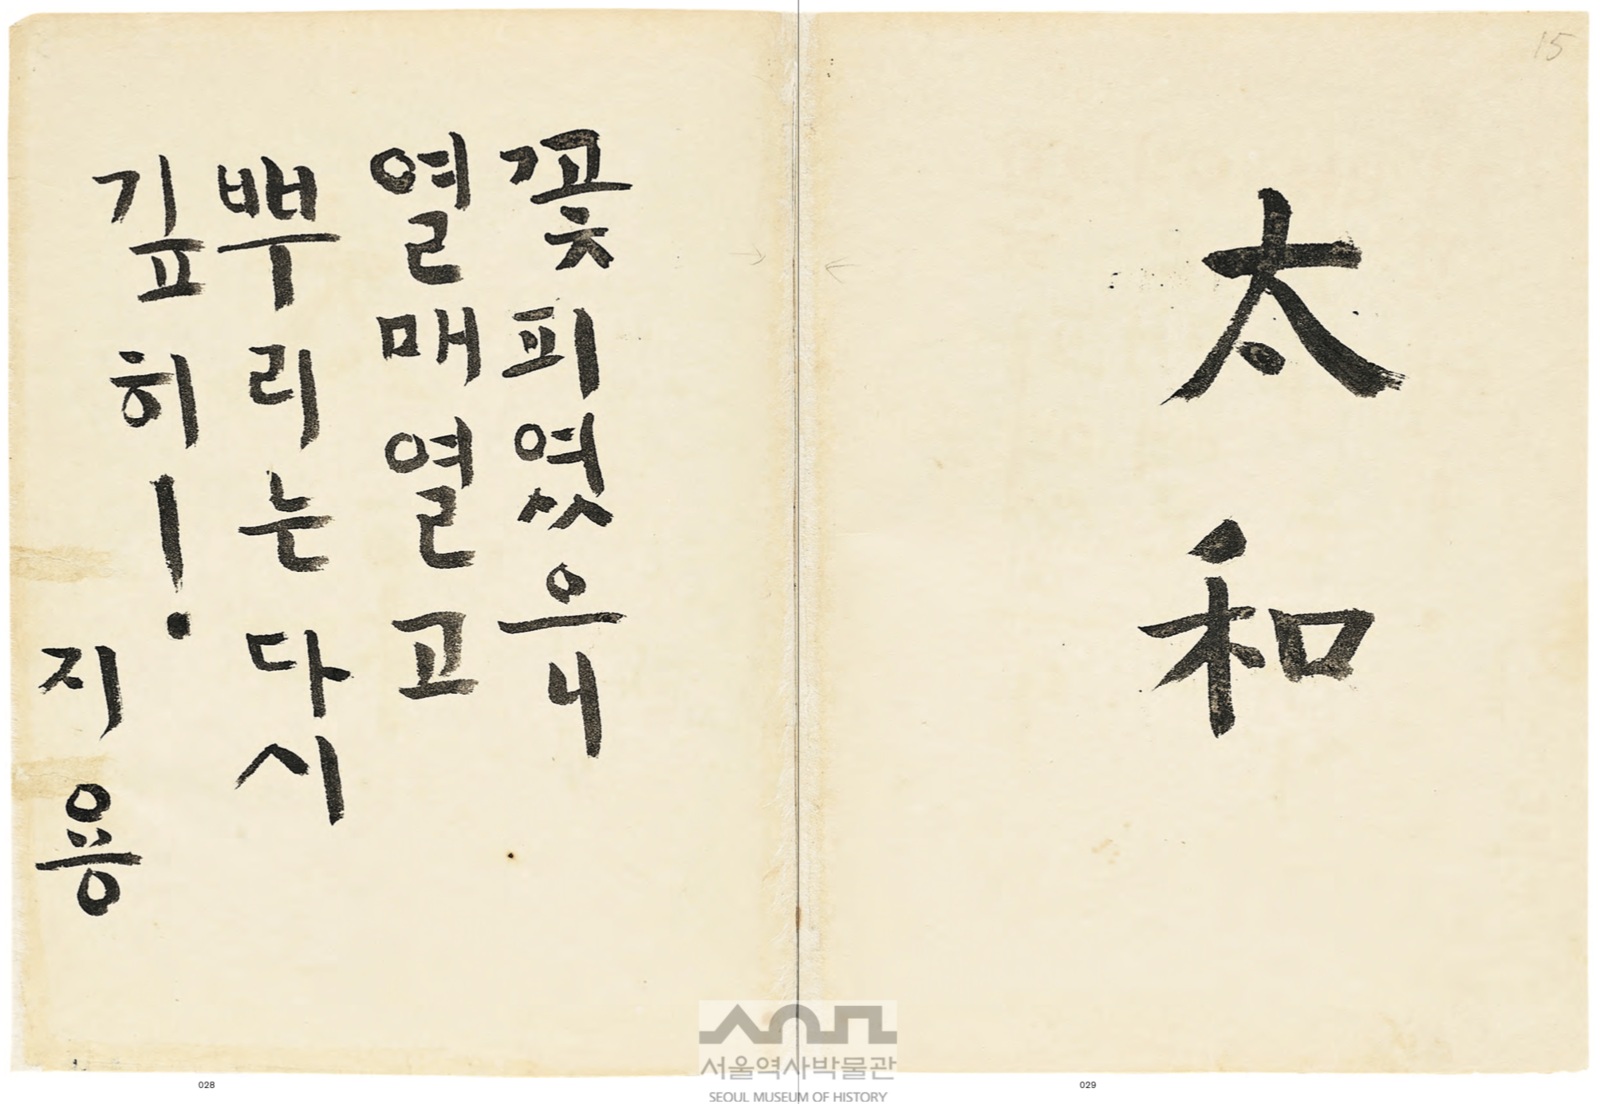 15
太和
꽃피였으니
열매열고
뿌리는다시
깊히!
지용
028
029
서울역사박물관
SEOUL MUSEUM OF HISTORY